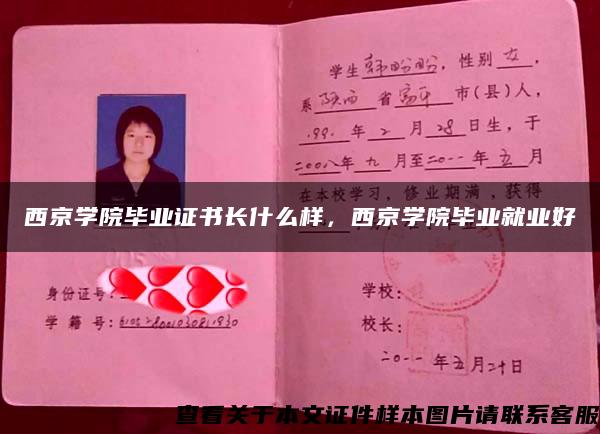 学生韩盼盼，性别女，
系陕西省富平市(县)人，
199 年2月28日生，于
二〇〇八年九月至二〇一一年五月
在本校学习，修业期满，获得
西京学院毕业证书长什么样，西京学院毕业就业好
身份证号：
学籍号：
学校：
校长：
二〇一一年五月二十日
查看关于本文证件样本图片请联系客服